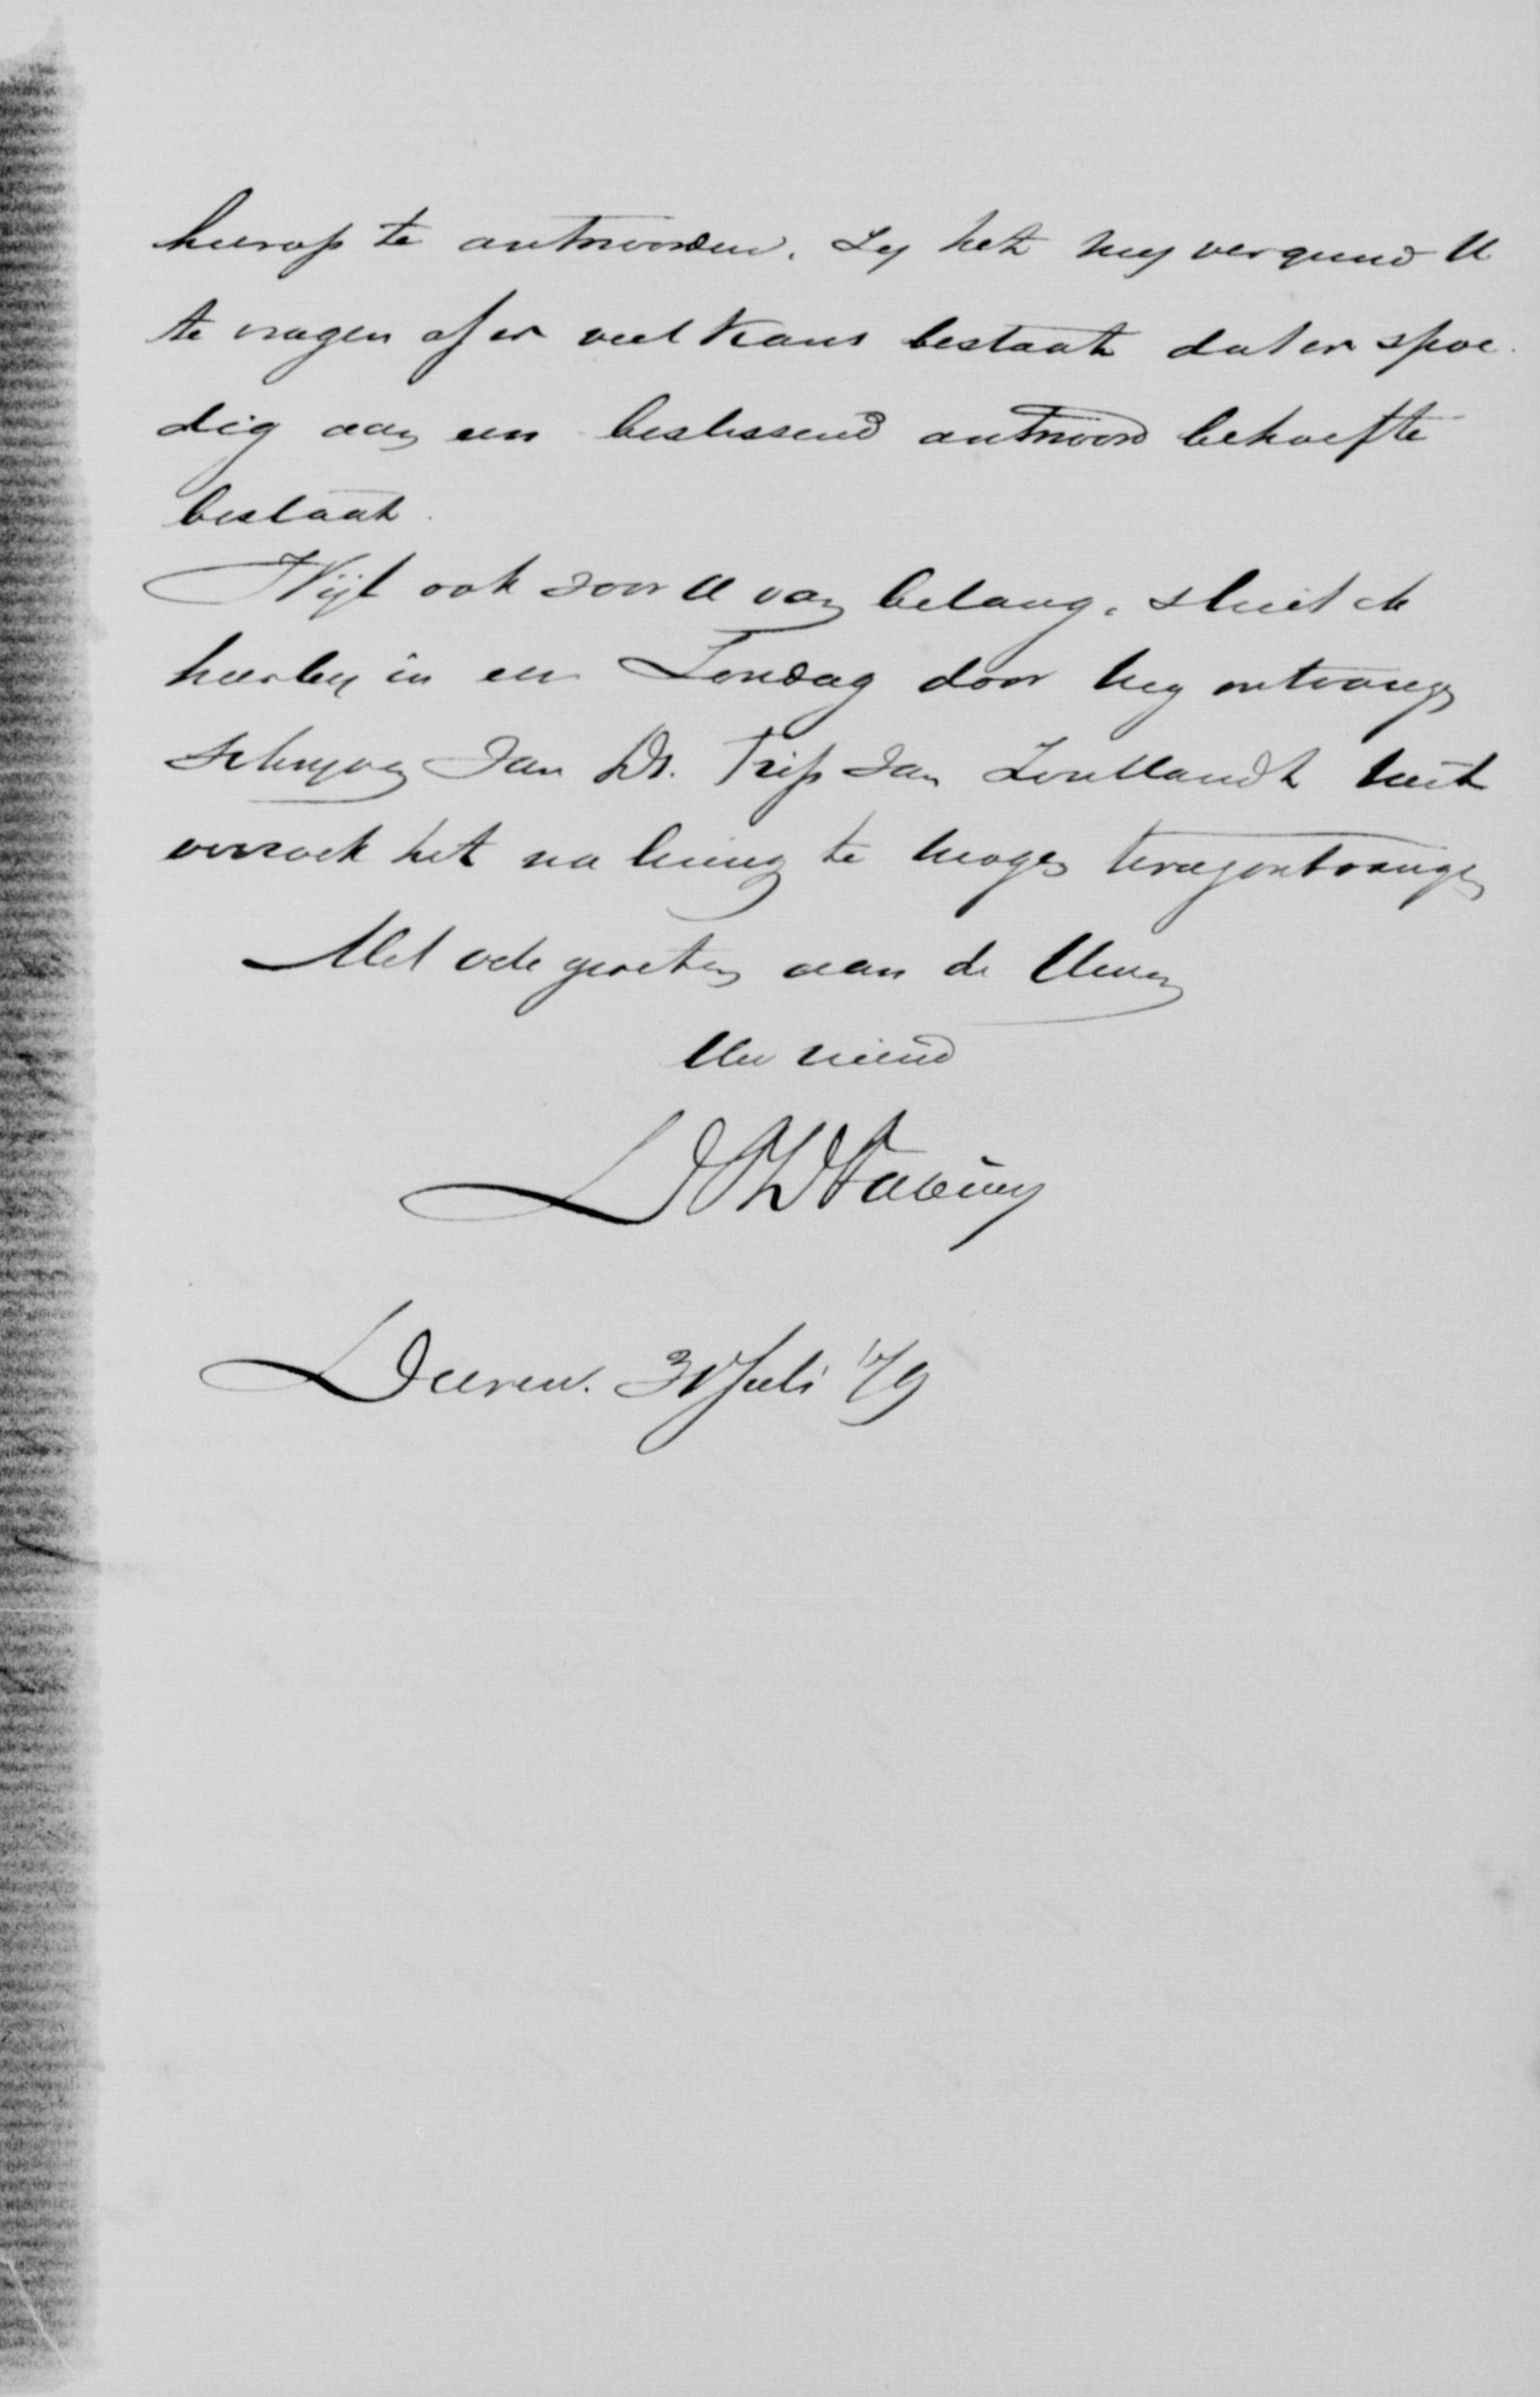 hierop te antwoorden. Zij het mij vergund U
te vragen of er veel kans bestaat dat er spoe-
dig aan een beslissend antwoord behoefte
bestaat.
Wijl ook voor U van belang, sluit ik
hierbij in een Zondag door mij ontvangen
schrijven van Ds. Trip van Zoutlandt met
verzoek het na lezing te mogen terugontvangen
Met vele groeten aan de Uwen
Uw vriend
Deeren. 31 Juli '79